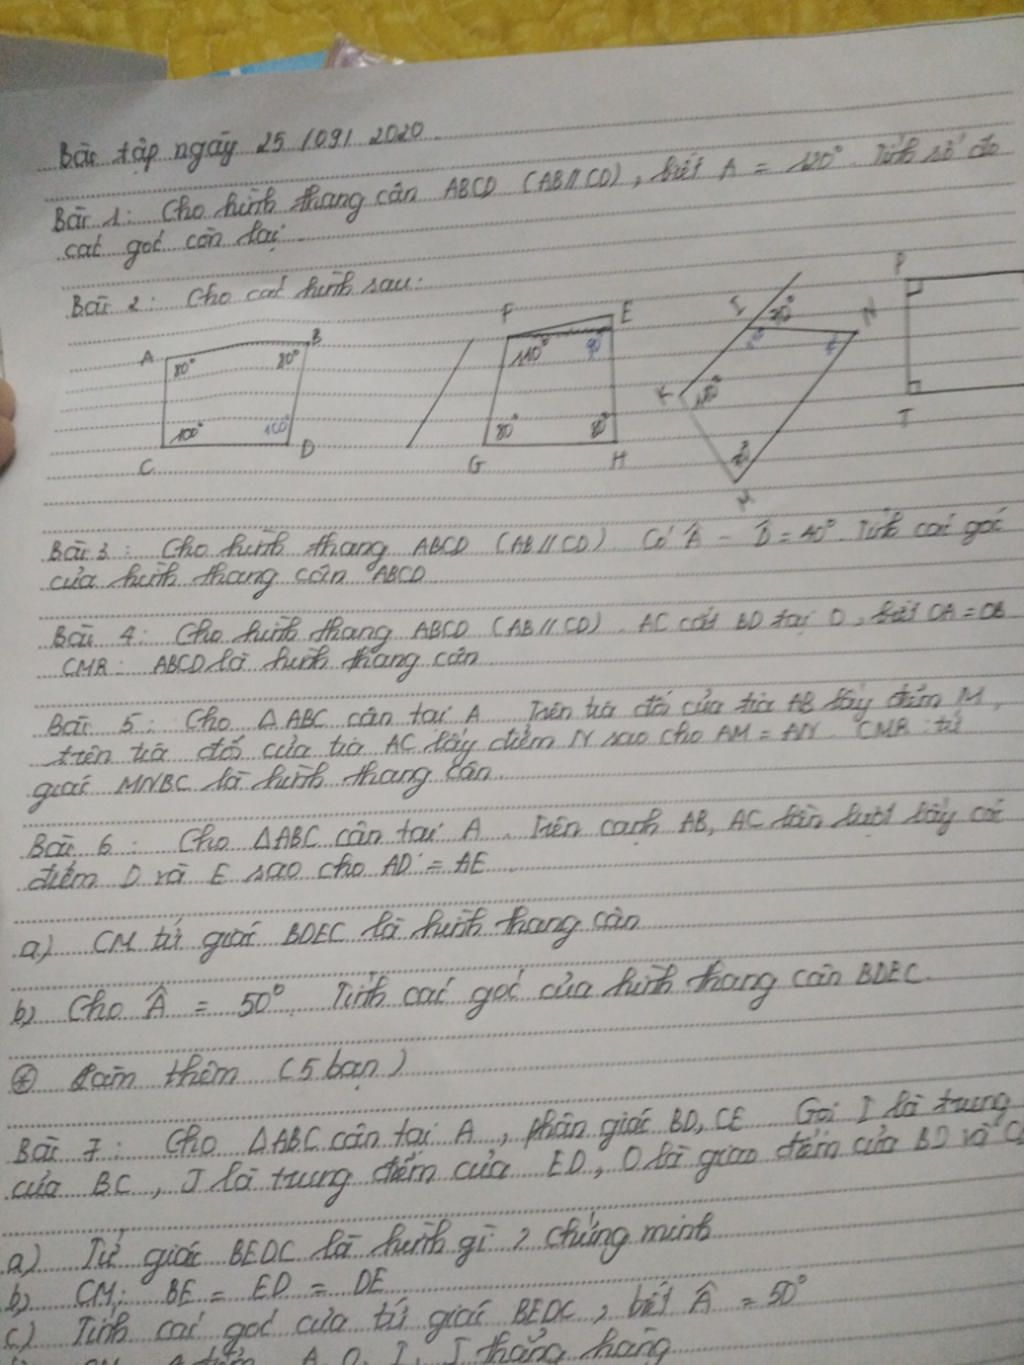 Bài tập ngày 25 / 09 / 2020
Bài 1: Cho hình thang cân ABCD (AB // CD), biết A = 120°. Tính số đo
các góc còn lại
Bài 2: Cho các hình sau:
A 80° B 80° C 100° D 100°
F 110° E 90° G 80° H 80°
I 70° N K M
P T
Bài 3: Cho hình thang ABCD (AB // CD). Có Â - D̂ = 40°. Tính các góc
của hình thang cân ABCD
Bài 4: Cho hình thang ABCD (AB // CD). AC cắt BD tại O, biết OA = OB
CMR: ABCD là hình thang cân
Bài 5: Cho △ABC cân tại A Trên tia đối của tia AB lấy điểm M,
trên tia đối của tia AC lấy điểm N sao cho AM = AN. CMR: tứ
giác MNBC là hình thang cân.
Bài 6: Cho △ABC cân tại A. Trên cạnh AB, AC lần lượt lấy các
điểm D và E sao cho AD = AE
a) CM tứ giác BDEC là hình thang cân
b) Cho Â = 50°. Tính các góc của hình thang cân BDEC.
⊛ Làm thêm (5 bạn)
Bài 7: Cho △ABC cân tại A, phân giác BD, CE Gọi I là trung
của BC, J là trung điểm của ED, O là giao điểm của BD và
a) Tứ giác BEDC là hình gì? chứng minh
b) CM: BE = ED = DE
c) Tính các góc của tứ giác BEDC, biết Â = 50°
A, O, I, J thẳng hàng